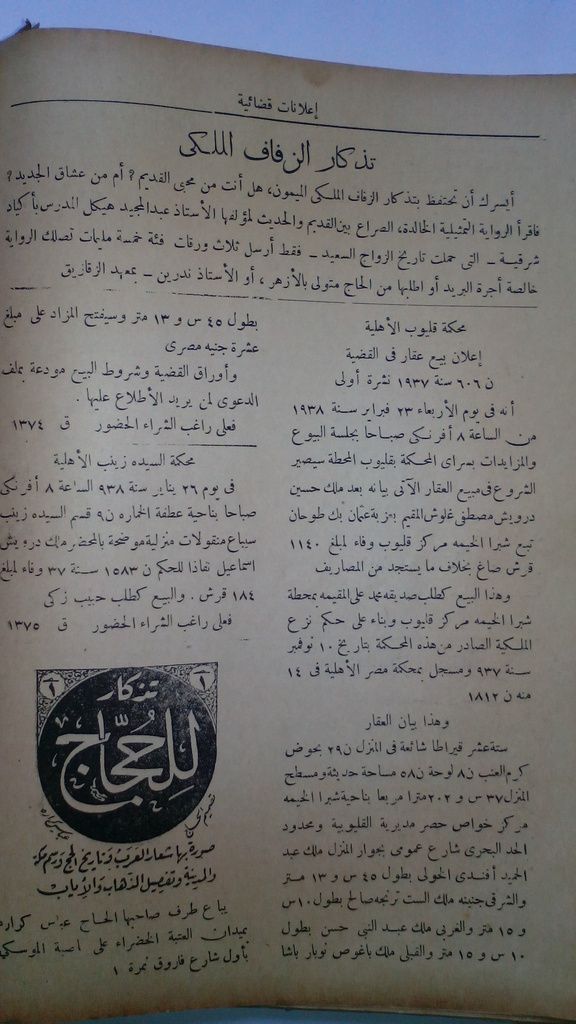 إعلانات قضائية
تذكار الزفاف الملكى
أيسرك أن تحتفظ بتذكار الزفاف الملكى الميمون، هل أنت من محبى القديم ؟ أم من عشاق الجديد ؟
فاقرأ الرواية التمثيلية الخالدة، الصراع بين القديم والحديث لمؤلفها الأستاذ عبد المجيد هيكل المدرس بأكياد
شرقية ــ التى حملت تاريخ الزواج السعيد ــ فقط أرسل ثلاث ورقات فئة خمسة مليمات تصلك الرواية
خالصة أجرة البريد أو اطلبها من الحاج متولى بالأزهر ، أو الأستاذ ندرين ــ بمعهد الزقازيق
محكمة قليوب الأهلية
إعلان بيع عقار فى القضية
ن ٦٠٦ سنة ١٩٣٧ نشرة أولى
أنه فى يوم الأربعاء ٢٣ فبراير سنة ١٩٣٨
من الساعة ٨ أفرنكى صباحا بجلسة البيوع
والمزايدات بسراى المحكمة بقليوب المحطة سيصير
الشروع فى مبيع العقار الآتى بيانه بعد ملك حسين
درويش مصطفى غلوش المقيم بعزبة عثمان بك طوحان
تبع شبرا الخيمه مركز قليوب وفاء لمبلغ ١١٤٠
قرش صاغ بخلاف ما يستجد من المصاريف
وهذا البيع كطلب صديقه محمد على المقيمه بمحطة
شبرا الخيمه مركز قليوب وبناء على حكم نزع
الملكية الصادر من هذه المحكمة بتاريخ ١٠ نوفمبر
سنة ٩٣٧ ومسجل بمحكمة مصر الأهلية فى ١٤
منه ن ١٨١٢
وهذا بيان العقار
ستة عشر قيراطا شائعة فى المنزل ن ٢٩ بحوض
كرم العنب ن ٨ لوحة ن ٥٨ مساحة حديثة ومسطح
المنزل ٣٧ س و ٢٠٢ مترا مربعا بناحية شبرا الخيمه
مركز خواص حصر مديرية القليوبية ومحدود
الحد البحرى شارع عمومى بجوار المنزل ملك عبد
الحميد أفندى الخولى بطول ٤٥ س و ١٣ متر
والشرقى جنينه ملك الست ترنجه صالح بطول ١٠ س
و ١٥ متر والغربى ملك عبد النبى حسن بطول
١٠ س و ١٥ متر والقبلى ملك باغوص نوبار باشا
بطول ٤٥ س و ١٣ متر وسيفتح المزاد على مبلغ
عشرة جنيه مصرى
وأوراق القضية وشروط البيع مودعة بملف
الدعوى لمن يريد الأطلاع عليها .
فعلى راغب الشراء الحضور ق ١٣٧٤
محكمة السيده زينب الأهلية
فى يوم ٢٦ يناير سنة ٩٣٨ الساعة ٨ أفرنكى
صباحا بناحية عطفة الخماره ن ٩ قسم السيده زينب
سيباع منقولات منزلية موضحة بالمحضر ملك درويش
اسماعيل نفاذا للحكم ن ١٥٨٣ سنة ٣٧ وفاء لمبلغ
١٨٤ قرش . والبيع كطلب حبيب زكى
فعلى راغب الشراء الحضور ق ١٣٧٥
تذكار
للحجاج
صورة بها شعار العرب وتاريخ الحج ورسم مكة
والمدينة وتفصيل الذهاب والأياب
يباع طرف صاحبها الحاج عباس كراره
بميدان العتبة الخضراء على ناصية الموسكى
بأول شارع فاروق نمرة ١